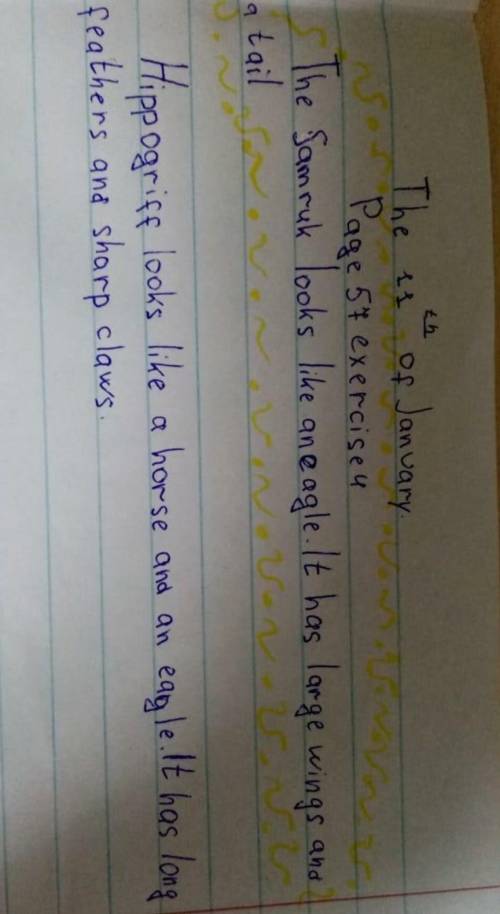 The 11th of January.
Page 57 exercise 4
The Samruk looks like an eagle. It has large wings and
a tail
Hippogriff looks like a horse and an eagle. It has long
feathers and sharp claws.